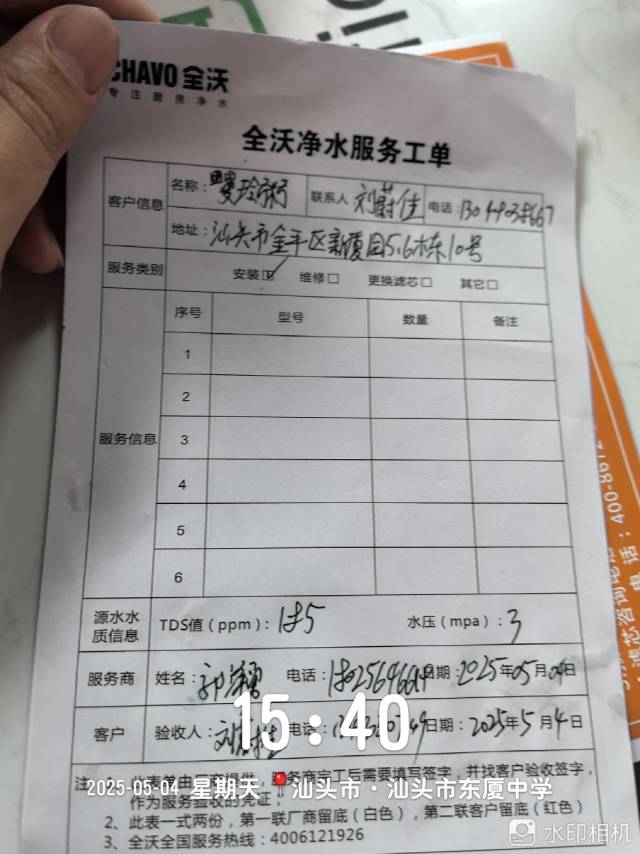 CHAVO 全沃
专注厨房净水
全沃净水服务工单
客户信息 名称： 联系人 刘蔚佳 电话：
地址：汕头市金平区新厦园5.6栋10号
服务类别 安装☑ 维修□ 更换滤芯□ 其它□
服务信息 序号 型号 数量 备注
1
2
3
4
5
6
源水水质信息 TDS值（ppm）： 水压（mpa）：3
服务商 姓名： 电话： 日期：2025年05月04日
客户 验收人： 电话： 日期：2025年5月4日
15:40
注： 此表单由厂商提供，服务商完工后需要填写签字，并找客户验收签字，
作为服务验收的凭证；
2025-05-04 星期天 汕头市·汕头市东厦中学
2、此表一式两份，第一联厂商留底（白色），第二联客户留底（红色）
3、全沃全国服务热线：4006121926
水印相机